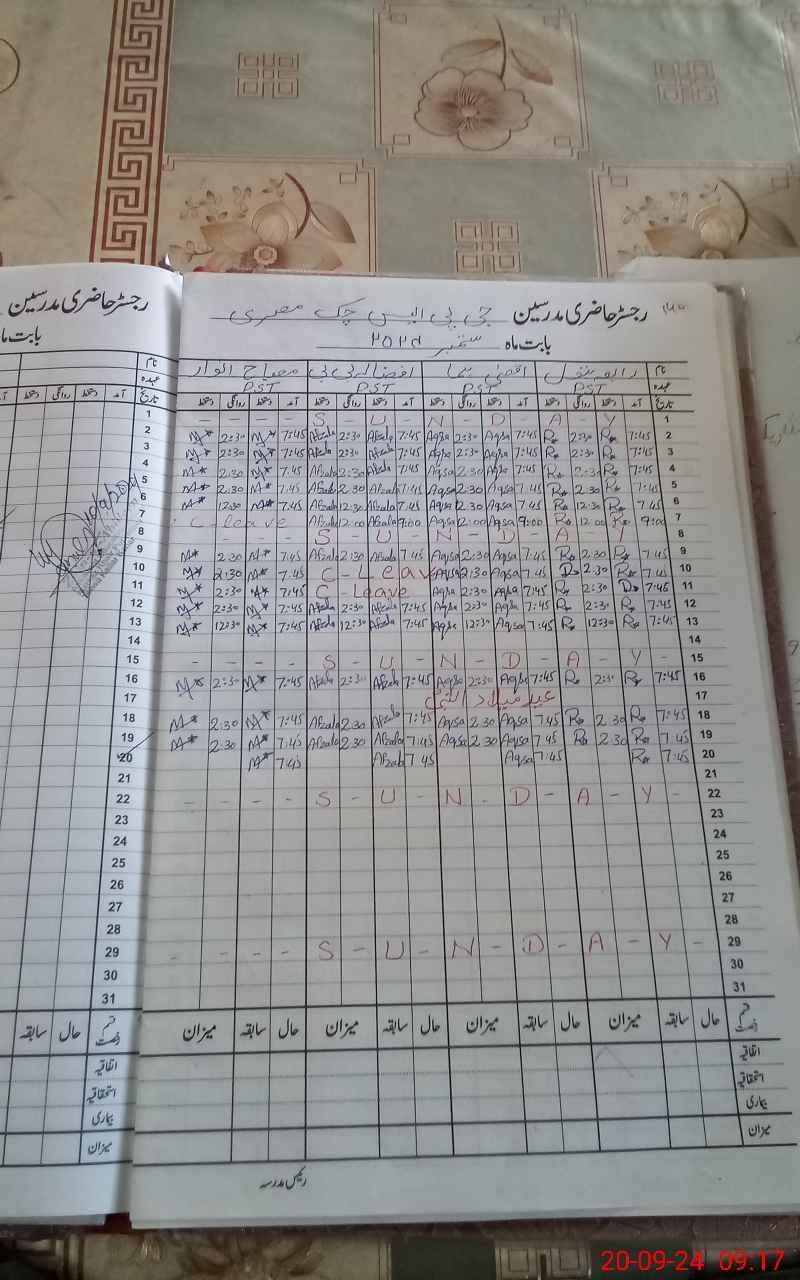 رجسٹر حاضری مدرسین
بابت ماہ
رجسٹر حاضری مدرسین جی پی ایس چک مصری
بابت ماہ ستمبر ۲۰۲۴
نام رابعہ بتول اقصیٰ افضالہ بی بی مصباح انوار
عہدہ PST PST PST PST
تاریخ آمد دستخط روانگی دستخط آمد دستخط روانگی دستخط آمد دستخط روانگی دستخط آمد دستخط روانگی دستخط
1 - - - - S - U - N - D - A - Y 1
2 M* 2:30 M* 7:45 Afzala 2:30 Afzala 7:45 Aqsa 2:30 Aqsa 7:45 R* 2:30 R* 7:45 2
3 M* 2:30 M* 7:45 Afzala 2:30 Afzala 7:45 Aqsa 2:30 Aqsa 7:45 R* 2:30 R* 7:45 3
4 M* 2:30 M* 7:45 Afzala 2:30 Afzala 7:45 Aqsa 2:30 Aqsa 7:45 R* 2:30 R* 7:45 4
5 M* 2:30 M* 7:45 Afzala 2:30 Afzala 7:45 Aqsa 2:30 Aqsa 7:45 R* 2:30 R* 7:45 5
6 M* 12:30 M* 7:45 Afzala 12:30 Afzala 7:45 Aqsa 12:30 Aqsa 7:45 R* 12:30 R* 7:45 6
7 C-leave Afzala 12:00 Afzala 9:00 Aqsa 12:00 Aqsa 9:00 R* 12:00 R* 9:00 7
8 - - - - S - U - N - D - A - Y 8
9 M* 2:30 M* 7:45 Afzala 2:30 Afzala 7:45 Aqsa 2:30 Aqsa 7:45 R* 2:30 R* 7:45 9
10 M* 2:30 M* 7:45 C-Leave Aqsa 2:30 Aqsa 7:45 R* 2:30 R* 7:45 10
11 M* 2:30 M* 7:45 C-Leave Aqsa 2:30 Aqsa 7:45 R* 2:30 R* 7:45 11
12 M* 2:30 M* 7:45 Afzala 2:30 Afzala 7:45 Aqsa 2:30 Aqsa 7:45 R* 2:30 R* 7:45 12
13 M* 12:30 M* 7:45 Afzala 12:30 Afzala 7:45 Aqsa 12:30 Aqsa 7:45 R* 12:30 R* 7:45 13
14 14
15 - - - - S - U - N - D - A - Y - 15
16 M* 2:30 M* 7:45 Afzala 2:30 Afzala 7:45 Aqsa 2:30 Aqsa 7:45 R* 2:30 R* 7:45 16
17 عید میلاد النبی 17
18 M* 2:30 M* 7:45 Afzala 2:30 Afzala 7:45 Aqsa 2:30 Aqsa 7:45 R* 2:30 R* 7:45 18
19 M* 2:30 M* 7:45 Afzala 2:30 Afzala 7:45 Aqsa 2:30 Aqsa 7:45 R* 2:30 R* 7:45 19
20 M* 7:45 Afzala 7:45 Aqsa 7:45 R* 7:45 20
21 21
22 - - - - S - U - N - D - A - Y - 22
23 23
24 24
25 25
26 26
27 27
28 28
29 - - - - S - U - N - D - A - Y - 29
30 30
31 31
قسم رخصت حال سابقہ میزان حال سابقہ میزان حال سابقہ میزان حال سابقہ میزان
اتفاقیہ
استحقاقیہ
بیماری
میزان
رئیس مدرسہ
20-09-24 09:17